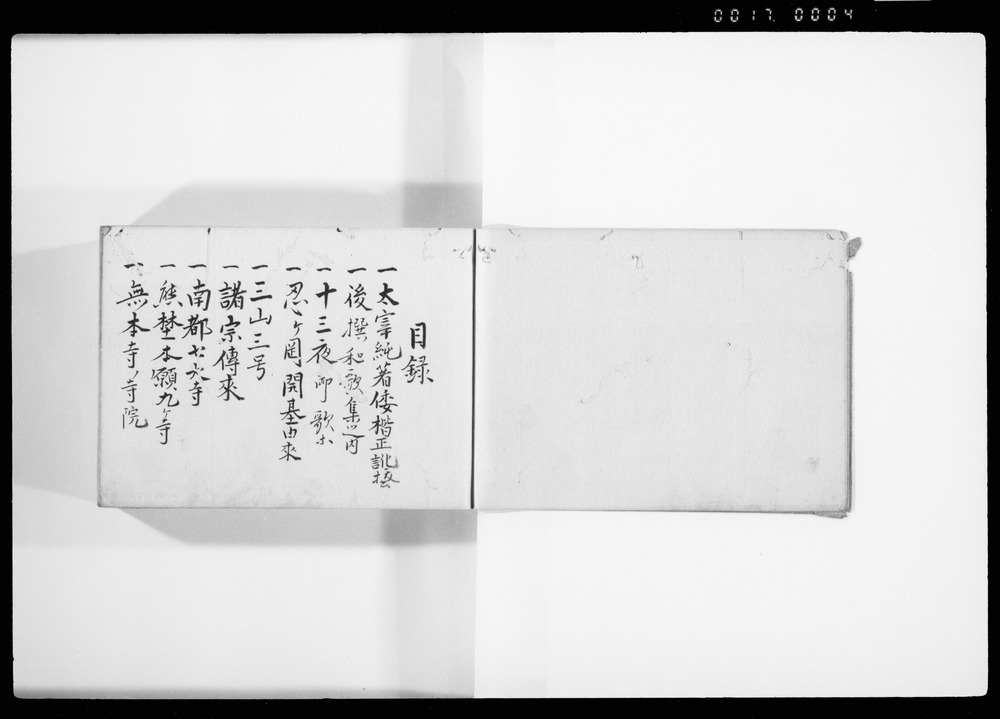 0017 0004
目録
一太宰純著倭楷正訛抜
一後撰和歌集之内
一十三夜御歌
一忍ヶ岡開基由来
一三山三号
一諸宗傳來
一南都七大寺
一熊埜本願九ヶ寺
一無本寺ノ寺院